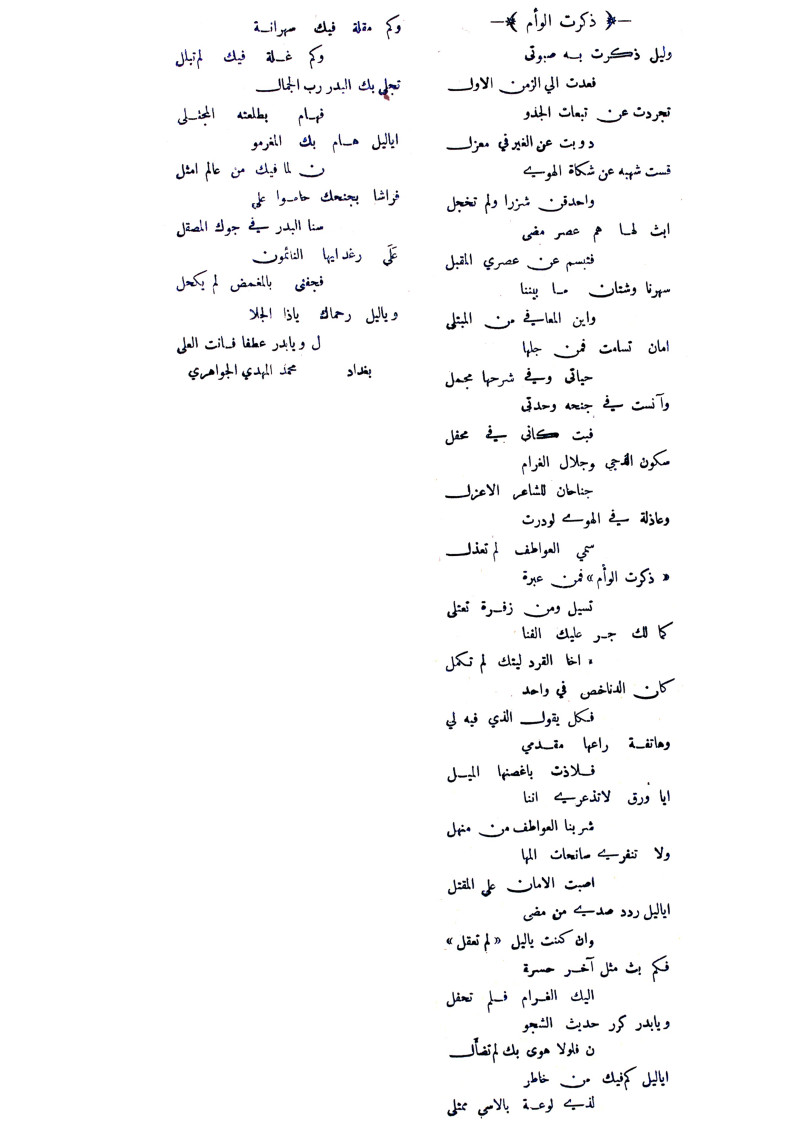 ذكرت الوأم
وليل ذكرت به صبوتى
فعدت الي الزمن الاول
تجردت عن تبعات الجذو
د وبت عن الغير في معزل
قست شهبه عن شكاة الهوى
واحدقن شزرا ولم تخجل
ابث لها هم عصر مضى
فتبسم عن عصري المقبل
سهرنا وشتان ما بيننا
واين المعافي من المبتلى
امان تسامت فمن جلها
حياتى وفي شرحها مجمل
وآنست في جنحه وحدتى
فبت كانى في محفل
سكون الدجي وجلال الغرام
جناحان للشاعر الاعزل
وعاذلة في الهوى لودرت
سمي العواطف لم تعذل
« ذكرت الوأم » فمن عبرة
تسيل ومن زفرة تعتلى
كما لك جر عليك الفنا
ء اخا القرد ليتك لم تكمل
كان الدناخص في واحد
فكل يقول الذي فيه لي
وهاتفة راعها مقدمي
فلاذت باغصنها الميل
ايا ورق لاتذعري اننا
شربنا العواطف من منهل
ولا تنفري سانحات المها
اصبت الامان علي المقتل
اياليل ردد صدى من مضى
وان كنت ياليل « لم تعقل »
فكم بث مثل آخر حسرة
اليك الغرام فلم تحفل
ويابدر كرر حديث الشجو
ن فلولا هوى بك لم تضأل
اياليل كم فيك من خاطر
لذي لوعة بالاسي ممتلى
وكم مقلة فيك سهرانة
وكم غلة فيك لم تبلل
تجلي بك البدر رب الجمال
فهام بطلعته المجتلى
اياليل هام بك المغرمو
ن لما فيك من عالم امثل
فراشا بجنحك حاموا علي
سنا البدر في جوك المصقل
عَلَى رغد ايها النائمون
فجفنى بالمغمض لم يكحل
وياليل رحماك ياذا الجلا
ل ويابدر عطفا فانت العلى
بغداد محمد المهدي الجواهري